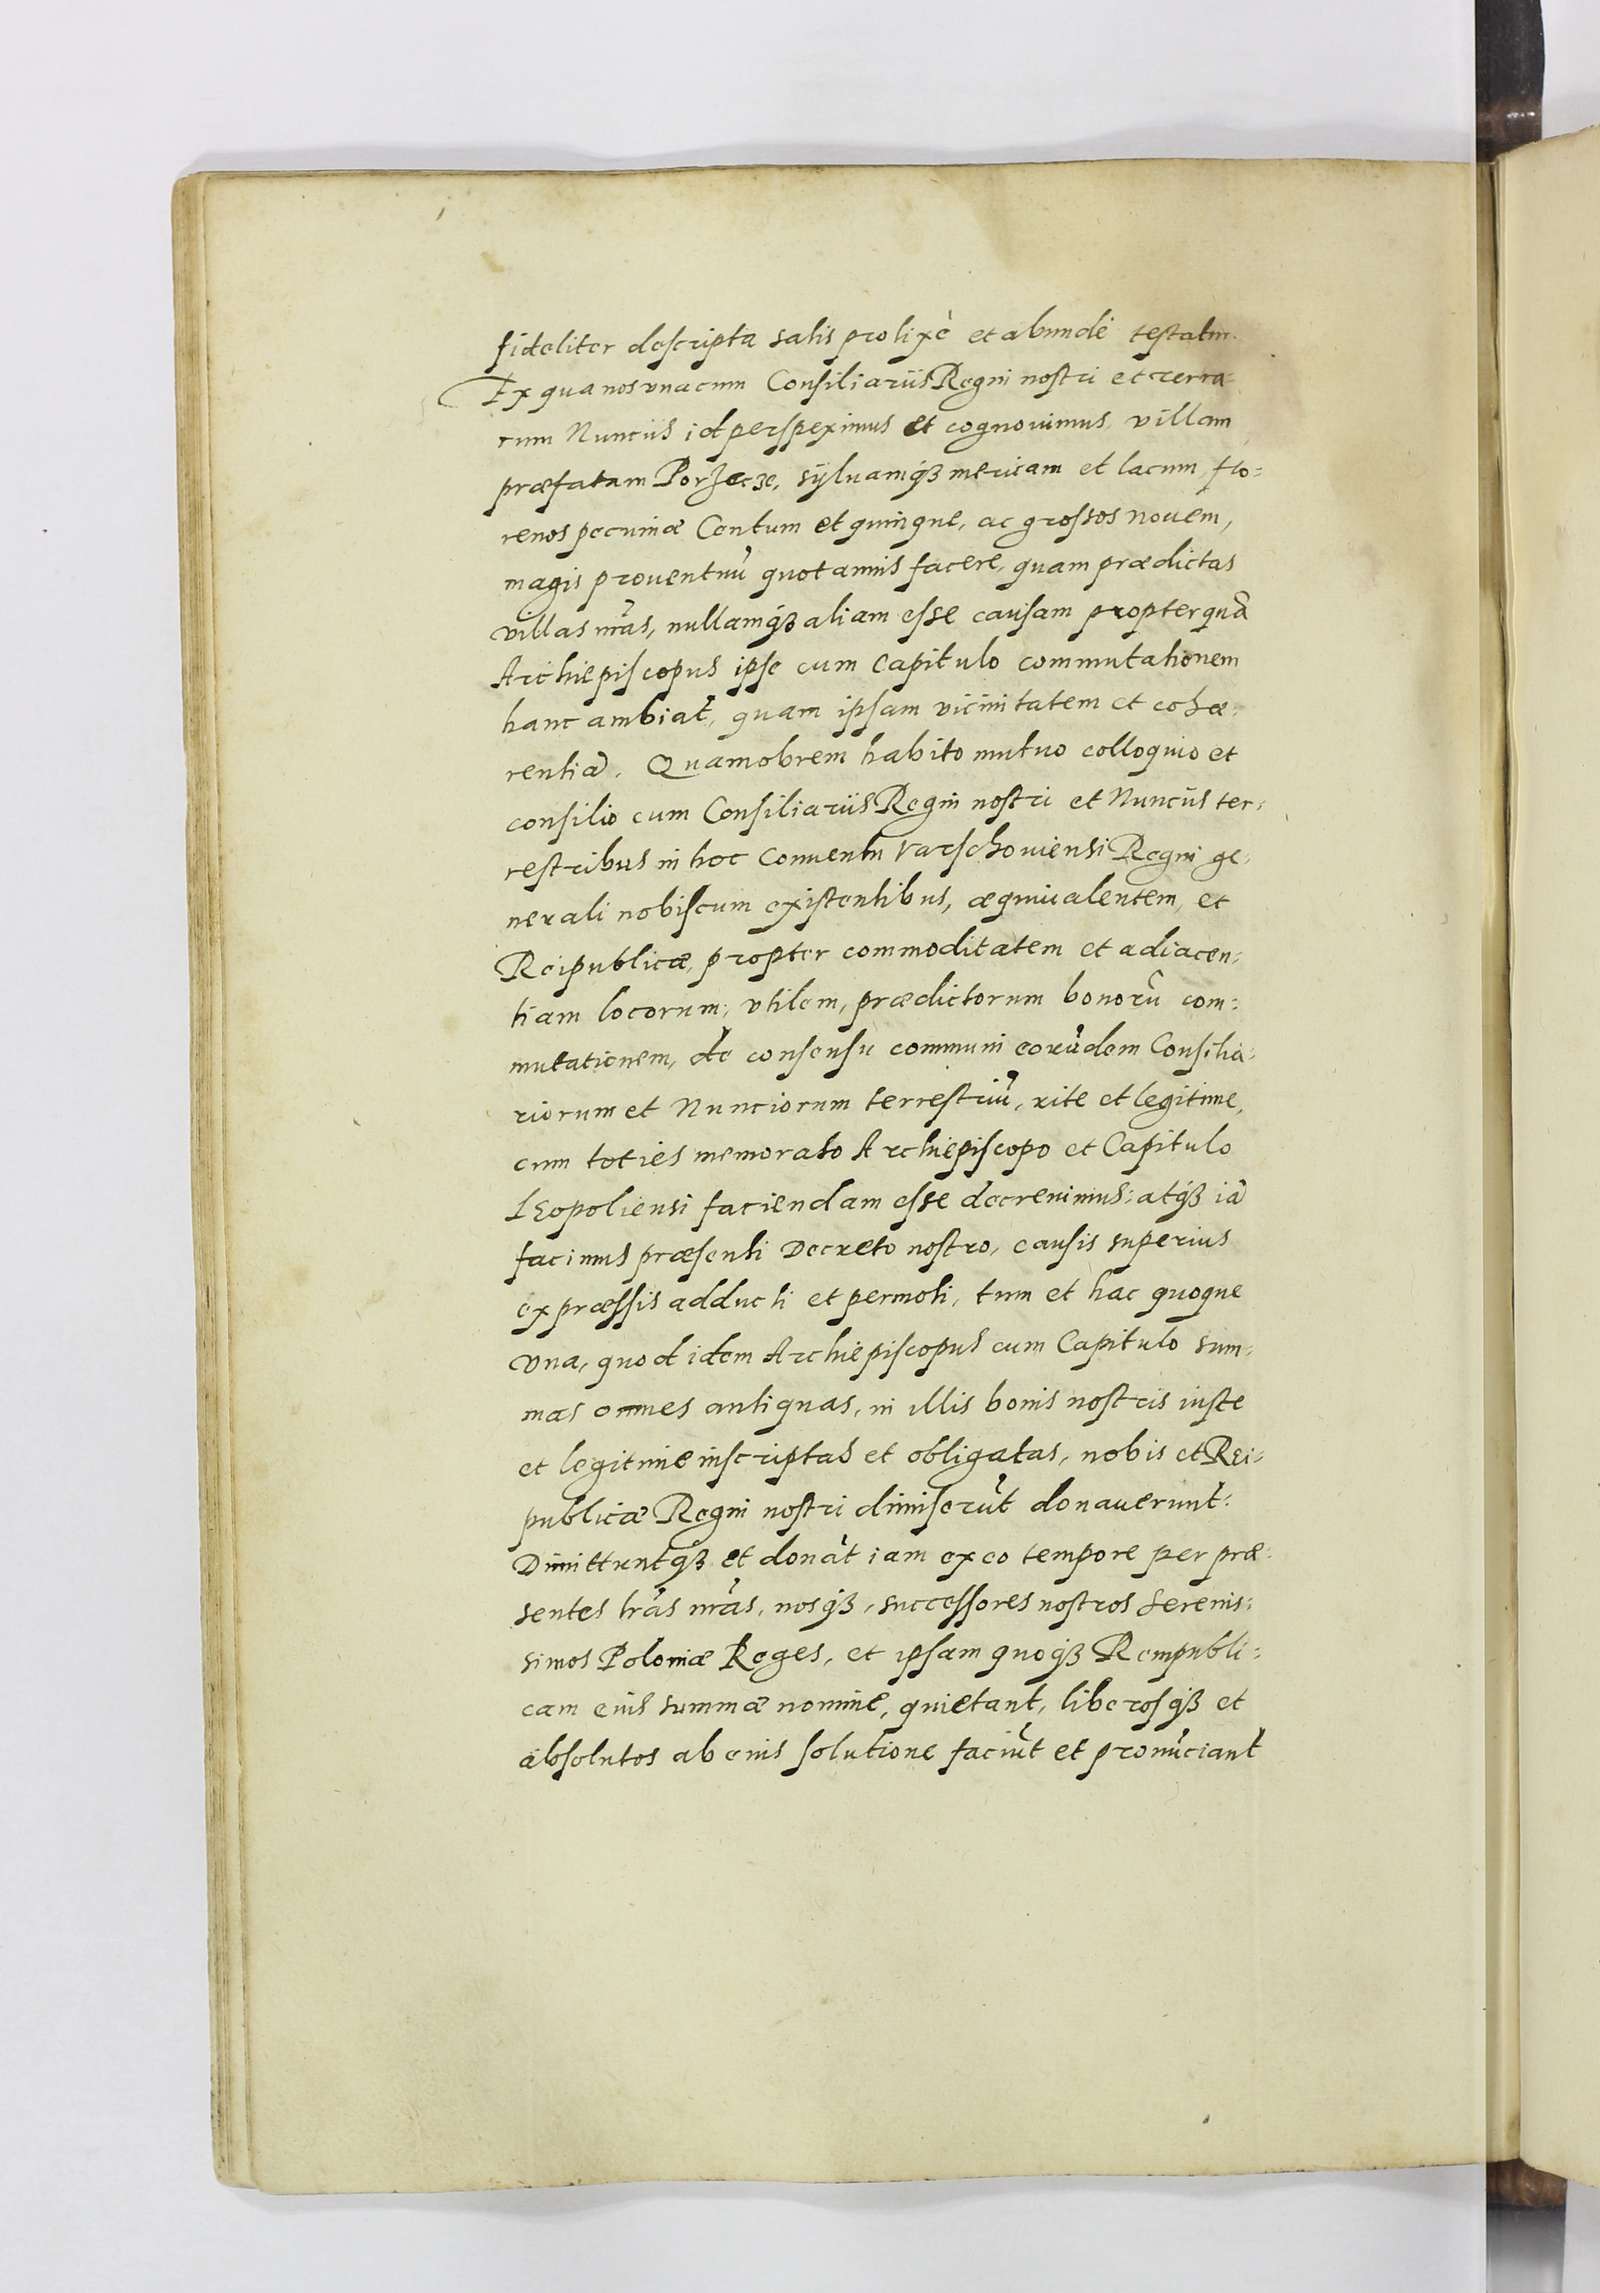 fideliter descripta satis prolixè et abundè testatur.
Ex qua nos vna cum Consiliariis Regni nostri et terra:
rum Nunciis id perspeximus et cognouimus, villam
præfatam Porzecze, syluamq́ꝫ mericam et lacum, flo:
renos pecuniæ Centum et quinque, ac grossos nouem,
magis prouentuũ quotannis facere, quam prædictas
villas nr̃as, nullamq́ꝫ aliam esse causam propter quã
Archiepiscopus ipse cum Capitulo commutationem
hanc ambiat, quam ipsam vicinitatem et cohæ:
rentiã. Quamobrem habito mutuo colloquio et
consilio cum Consiliariis Regni nostri et Nunciis ter:
restribus in hoc Conuentu Varschouiensi Regni ge:
nerali nobiscum existentibus, æquiualentem, et
Reipublicæ, propter commoditatem et adiacen:
tiam locorum, vtilem, prædictorum bonorũ com:
mutationem, de consensu communi eorũdem Consilia:
riorum et Nunciorum terrestriũ, rite et legitime,
cum toties memorato Archiepiscopo et Capitulo
Leopoliensi faciendam esse decreuimus: atq́ꝫ iã
facimus præsenti Decreto nostro, causis superius
expræssis adducti et permoti, tum et hac quoque
vna, quod idem Archiepiscopus cum Capitulo sum:
mas omnes antiquas, in illis bonis nostris iuste
et legitime inscriptas et obligatas, nobis et Rei:
publicæ Regni nostri dimiserũt donauerunt:
Dimittuntq́ꝫ et donãt iam ex eo tempore per præ:
sentes lr̃as nr̃as, nosq́ꝫ, successores nostros Serenis:
simos Poloniæ Reges, et ipsam quoq́ꝫ Rempubli:
cam eius summæ nomine, quietant, liberosq́ꝫ et
absolutos ab eius solutione faciũt et pronũciant